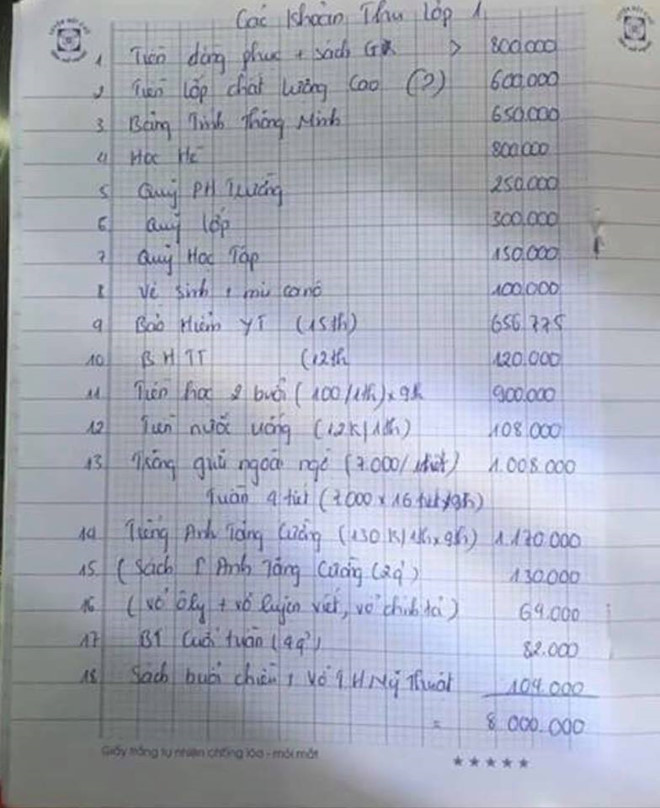 Các Khoản Thu Lớp 1
1 Tiền đồng phục + sách GK > 800.000
2 Tiền lớp chất lượng cao (?) 600.000
3 Bảng Tính Thông Minh 650.000
4 Học Hè 800.000
5 Quỹ PH Trường 250.000
6 Quỹ lớp 300.000
7 Quỹ Học Tập 150.000
8 Vệ sinh + mũ ca nô 100.000
9 Bảo Hiểm YT (15th) 656.775
10 BHTT (12th 120.000
11 Tiền học 2 buổi (100/1th) x 9th 900.000
12 Tiền nước uống (12K/1th) 108.000
13 Trông giữ ngoài ngờ (7.000/1tiết) 1.008.000
Tuần 4 tiết (7.000 x 16 tiết/9th)
14 Tiếng Anh Tăng Cường (130K/1th x 9th) 1.170.000
15 (Sách T Anh Tăng Cường (2q') 130.000
16 (vở ôly + vở luyện viết, vở chính tả) 69.000
17 BT Cuối tuần (4q') 82.000
18 Sách buổi chiều, Vở TH Mỹ Thuật 104.000
= 8.000.000
Giấy trắng tự nhiên chống lóa - mỏi mắt
★★★★★